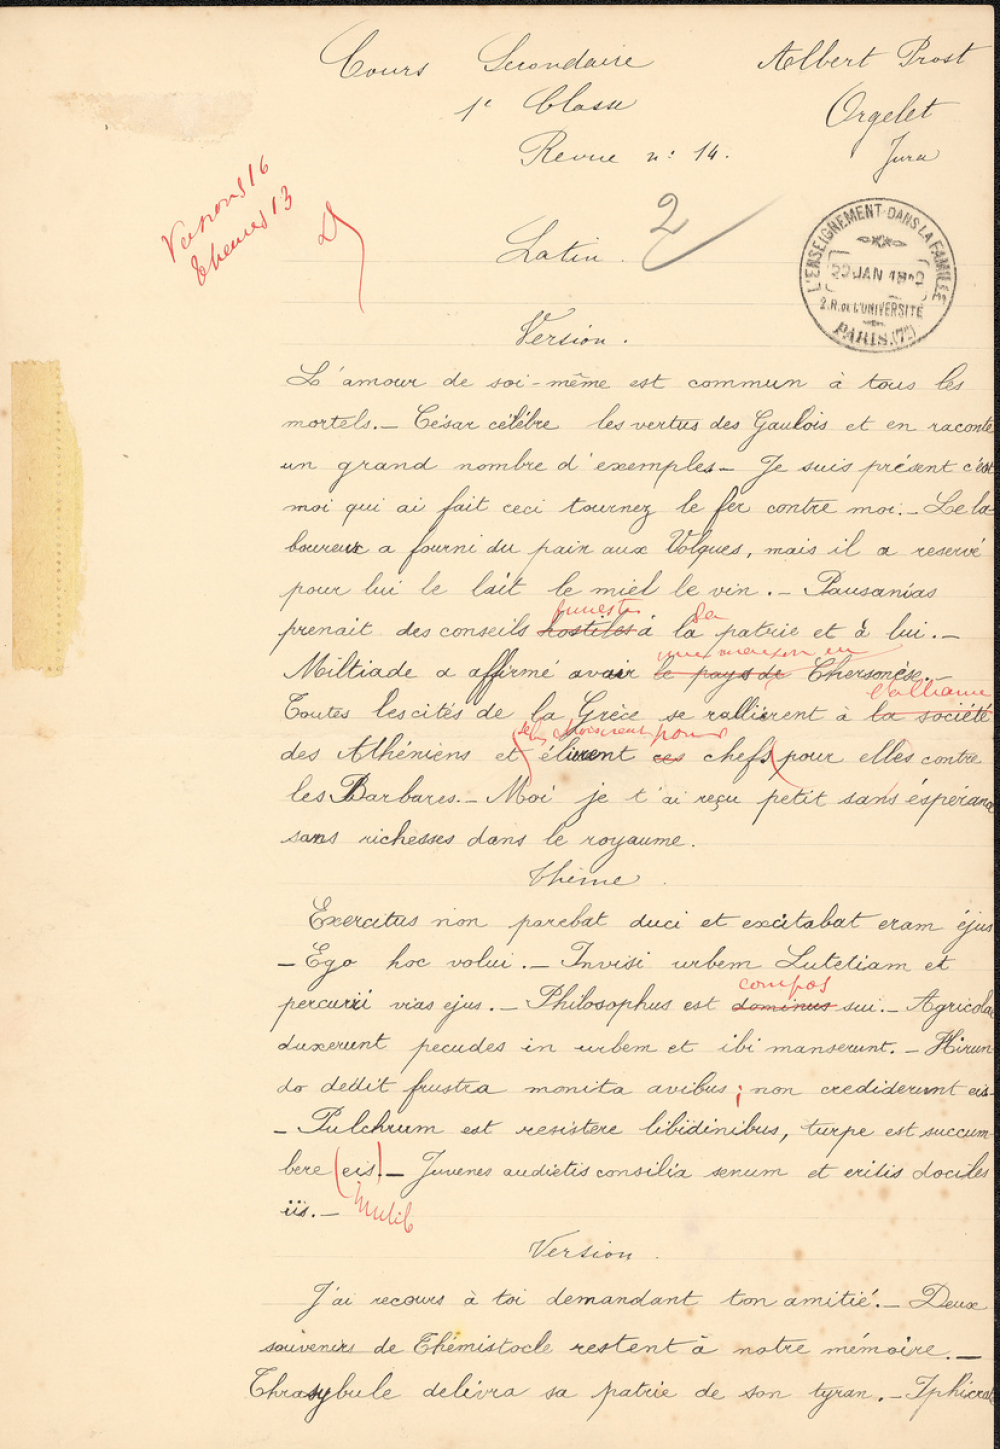 Cours Secondaire Albert Prost
1e Classe Orgelet
Revue n: 14. Jura
Versions 16
thèmes 13
2
Latin.
L'ENSEIGNEMENT DANS LA FAMILLE
JAN
2.R. DE L'UNIVERSITÉ
PARIS (7e)
Version.
L'amour de soi-même est commun à tous les
mortels.— César célèbre les vertus des Gaulois et en raconte
un grand nombre d'exemples— Je suis présent c'est
moi qui ai fait ceci tournez le fer contre moi.— Le la-
boureur a fourni du pain aux Volques, mais il a reservé
pour lui le lait le miel le vin.— Pausanias
funestes sa
prenait des conseils hostiles à la patrie et à lui.—
une maison en
Miltiade a affirmé avoir le pays de Chersonèse.—
l'alliance
Toutes les cités de la Grèce se rallièrent à la société
les choisirent pour
des Athéniens et élirent ces chefs pour elles contre
les Barbares.— Moi je t'ai reçu petit sans espérance
sans richesses dans le royaume.
Thème.
Exercitus non parebat duci et excitabat eram ejus
— Ego hoc volui.— Invisi urbem Lutetiam et
compos
percurri vias ejus.— Philosophus est dominus sui.— Agricolae
duxerunt pecudes in urbem et ibi manserunt.— Hirun-
do dedit frustra monita avibus; non crediderunt eis
— Pulchrum est resistere libidinibus, turpe est succum-
bere (eis)— Juvenes audietis consilia senum et eritis dociles
iis.— Inutile
Version.
J'ai recours à toi demandant ton amitié.— Deux
souvenirs de Thémistocle restent à notre mémoire.—
Thrasybule délivra sa patrie de son tyran.— Iphicrate